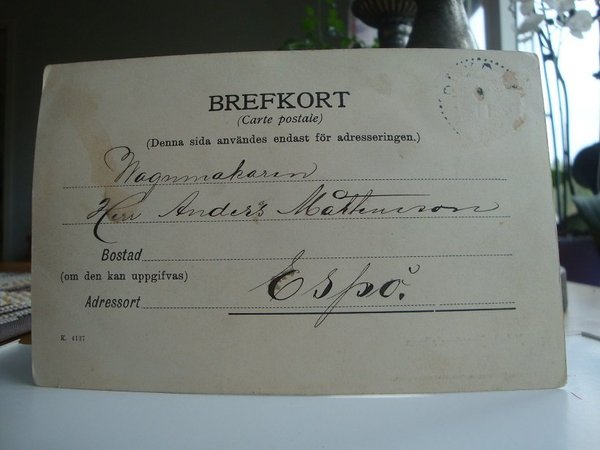 BREFKORT
(Carte postale)
(Denna sida användes endast för adresseringen.)
Wagnmakaren
Herr Anders Mårtensson
Bostad
(om den kan uppgifvas)
Espö.
Adressort
K. 4137